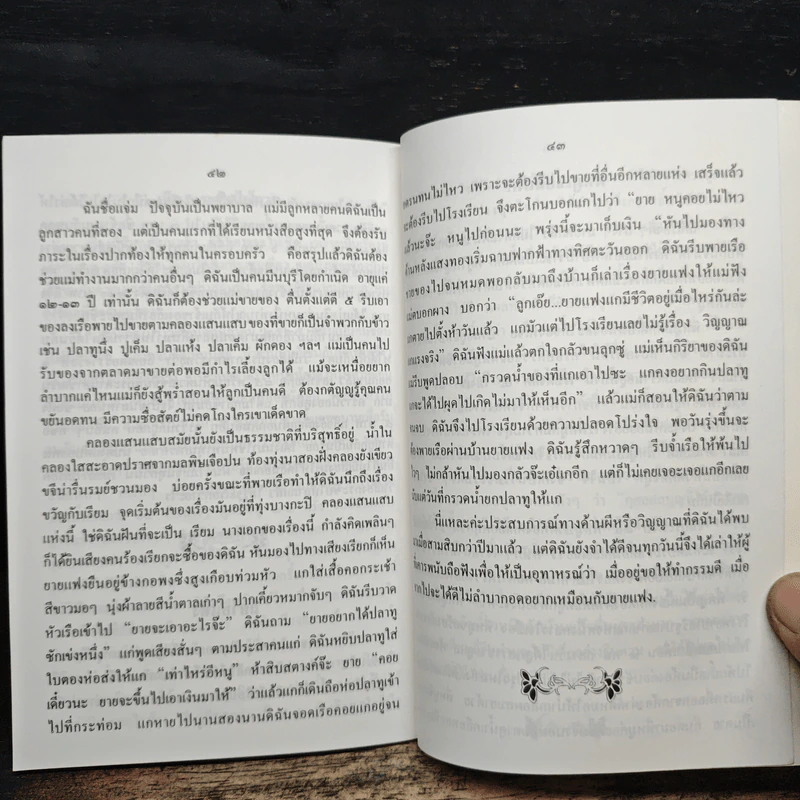 ๔๒
ฉันชื่อแจ่ม ปัจจุบันเป็นพยาบาล แม่มีลูกหลายคนดิฉันเป็น
ลูกสาวคนที่สอง แต่เป็นคนแรกที่ได้เรียนหนังสือสูงที่สุด จึงต้องรับ
ภาระในเรื่องปากท้องให้ทุกคนในครอบครัว คือสรุปแล้วดิฉันต้อง
ช่วยแม่ทำงานมากกว่าคนอื่นๆ ดิฉันเป็นคนมีนบุรีโดยกำเนิด อายุแค่
๑๒-๑๓ ปี เท่านั้น ดิฉันก็ต้องช่วยแม่ขายของ ตื่นตั้งแต่ตี ๕ รีบเอา
ของลงเรือพายไปขายตามคลองแสนแสบ ของที่ขายก็เป็นจำพวกกับข้าว
เช่น ปลาทูนึ่ง ปูเค็ม ปลาแห้ง ปลาเค็ม ผักดอง ฯลฯ แม่เป็นคนไป
รับของจากตลาดมาขายต่อพอมีกำไรเลี้ยงลูกได้ แม้จะเหนื่อยยาก
ลำบากแค่ไหนแม่ก็ยังสู้พร่ำสอนให้ลูกเป็นคนดี ต้องกตัญญูรู้คุณคน
ขยันอดทน มีความซื่อสัตย์ไม่คดโกงใครเขาเด็ดขาด
คลองแสนแสบสมัยนั้นยังเป็นธรรมชาติที่บริสุทธิ์อยู่ น้ำใน
คลองใสสะอาดปราศจากมลพิษเจือปน ท้องทุ่งนาสองฝั่งคลองยังเขียว
ขจีน่ารื่นรมย์ชวนมอง บ่อยครั้งขณะที่พายเรือทำให้ดิฉันนึกถึงเรื่อง
ขวัญกับเรียม จุดเริ่มต้นของเรื่องมันอยู่ที่ทุ่งบางกะปิ คลองแสนแสบ
แห่งนี้ ใช่ดิฉันฝันที่จะเป็น เรียม นางเอกของเรื่องนี้ กำลังคิดเพลินๆ
ก็ได้ยินเสียงคนร้องเรียกจะซื้อของดิฉัน หันมองไปทางเสียงเรียกก็เห็น
ยายแฟงยืนอยู่ข้างกอพงซึ่งสูงเกือบท่วมหัว แกใส่เสื้อคอกระเช้า
สีขาวมอๆ นุ่งผ้าลายสีน้ำตาลเก่าๆ ปากเคี้ยวหมากจับๆ ดิฉันรีบวาด
หัวเรือเข้าไป “ยายจะเอาอะไรจ๊ะ” ดิฉันถาม “ยายอยากได้ปลาทู
ซักเข่งหนึ่ง” แกพูดเสียงสั่นๆ ตามประสาคนแก่ ดิฉันหยิบปลาทูใส่
ใบตองห่อส่งให้แก “เท่าไหร่อีหนู” ห้าสิบสตางค์จ๊ะ ยาย “คอย
เดี๋ยวนะ ยายจะขึ้นไปเอาเงินมาให้” ว่าแล้วแกก็เดินถือห่อปลาทูเข้า
ไปที่กระท่อม แกหายไปนานสองนานดิฉันจอดเรือคอยแกอยู่จน
๔๓
ทนไม่ไหว เพราะจะต้องรีบไปขายที่อื่นอีกหลายแห่ง เสร็จแล้ว
จะต้องรีบไปโรงเรียน จึงตะโกนบอกแกไปว่า “ยาย หนูคอยไม่ไหว
แล้วนะจ๊ะ หนูไปก่อนนะ พรุ่งนี้จะมาเก็บเงิน “หันไปมองทาง
หลังแสงทองเริ่มฉาบฟากฟ้าทางทิศตะวันออก ดิฉันรีบพายเรือ
ของไปจนหมดพอกลับมาถึงบ้านก็เล่าเรื่องยายแฟงให้แม่ฟัง
บอกว่า “ลูกเอ๊ย...ยายแฟงแกมีชีวิตอยู่เมื่อไหร่กันล่ะ
แกตายไปตั้งห้าวันแล้ว แกมัวแต่ไปโรงเรียนเลยไม่รู้เรื่อง วิญญาณ
แกแรงจริง” ดิฉันฟังแม่แล้วตกใจกลัวขนลุกซู่ แม่เห็นกิริยาของดิฉัน
รีบพูดปลอบ “กรวดน้ำของที่แกเอาไปซะ แกคงอยากกินปลาทู
จะได้ไปผุดไปเกิดไม่มาให้เห็นอีก” แล้วแม่ก็สอนให้ดิฉันว่าตาม
ดิฉันจึงไปโรงเรียนด้วยความปลอดโปร่งใจ พอวันรุ่งขึ้นจะ
ต้องพายเรือผ่านบ้านยายแฟง ดิฉันรู้สึกหวาดๆ รีบจ้ำเรือให้พ้นไป
ไม่กล้าหันไปมองกลัวจ๊ะเอ๋แกอีก แต่ก็ไม่เคยเจอะเจอแกอีกเลย
แต่วันที่กรวดน้ำยกปลาทูให้แก
นี่แหละค่ะประสบการณ์ทางด้านผีหรือวิญญาณที่ดิฉันได้พบ
เมื่อสามสิบกว่าปีมาแล้ว แต่ดิฉันยังจำได้ดีจนทุกวันนี้จึงได้เล่าให้ผู้
ที่เคารพนับถือฟังเพื่อให้เป็นอุทาหรณ์ว่า เมื่ออยู่ขอให้ทำกรรมดี เมื่อ
ไปจะได้ดีไม่ลำบากอดอยากเหมือนกับยายแฟง.